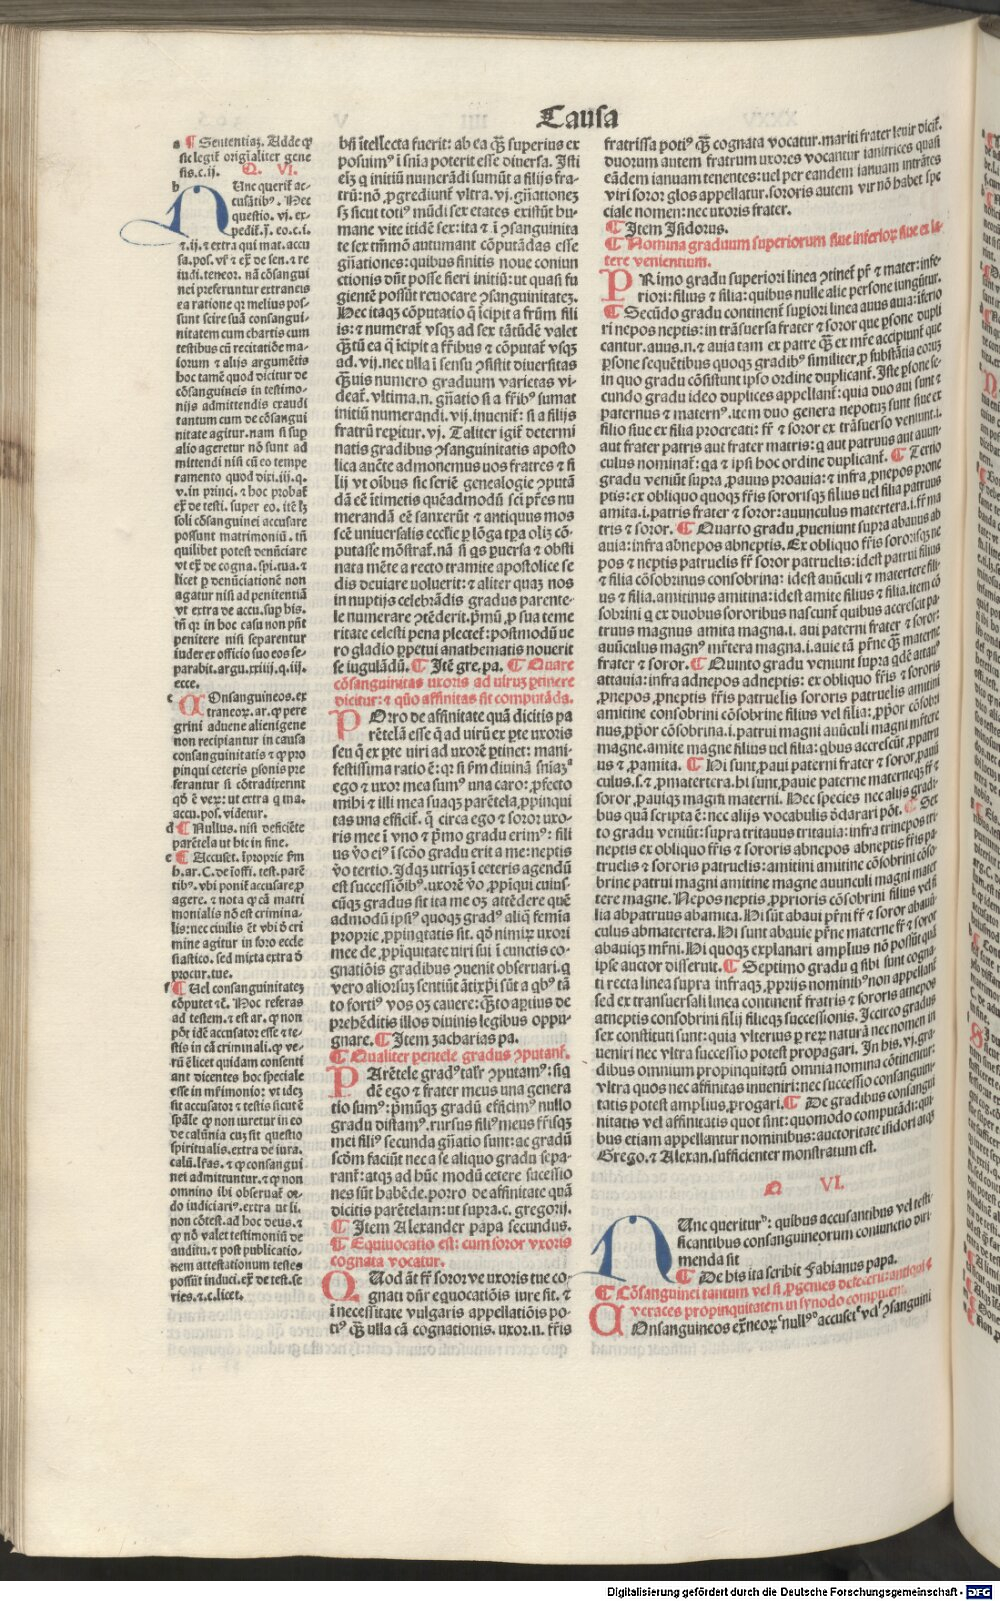 Causa
a ¶ Sententiaʒ. Adde ꝙ
sic legit͛ origĩaliter gene
sis.c.ij. Q. VI.
b Nunc querit͛ ac-
cusãtibꝰ. Hec
questio. vj. ex-
pedit͛. j. eo. c. i.
⁊.ij. ⁊ extra qui mat. accu
nei preferuntur extraneis
ea ratione qꝛ melius pos-
sunt scire suã consangui-
nitatem cum chartis cum
testibus cũ recitatiõe ma-
iorum ⁊ alijs argumẽtis
hoc tamẽ quod dicitur de
cõsanguineis in testimo-
nijs admittendis exaudi
tantum cum de cõsangui
nitate agitur. nam si sup͛
alio ageretur nõ sunt ad
mittendi nisi cũ eo tempe
ramento quod dixi. iii. q.
v. in princi. ⁊ hoc probat͛
soli cõsanguinei accusare
possunt matrimoniũ. tñ
quilibet potest denũciare
licet ꝑ denũciationẽ non
agatur nisi ad penitentiã
vt extra de accu. sup his.
tñ qꝛ in hoc casu non pñt
penitere nisi separentur
iudex ex officio suo eos se-
parabit. argu. xxiiij. q. iij.
ecce.
c COnsanguineos. ex
traneoꝝ. ar. ꝙ pere
grini aduene alienigene
non recipiantur in causa
consanguinitatis ⁊ ꝙ pro
pinqui ceteris ꝑsonis pre
ferantur si cõtradixerint
qđ ẽ veꝝ: ut extra q ma.
accu. pos. videtur.
d ¶ Nullus. nisi deficiẽte
parẽtela ut hic in fine.
e ¶ Accuset. ĩproprie ẝm
tibꝰ. vbi ponit͛ accusare ꝓ
agere. ⁊ nota ꝙ cã matri
monialis nõ est crimina-
lis: nec ciuilis ẽt vbi đ cri
mine agitur in foro eccle
siastico. sed mixta extra đ
procur. tue.
f ¶ Uel consanguinitateʒ
cõputet ⁊ẽ. Hoc referas
ad testem. ⁊ est ar. ꝙ non
põt idẽ accusator esse ⁊ te-
stis in cã criminali. ꝙ ve-
rũ ẽ licet quidam consenti
ant dicentes hoc speciale
esse in mr̃imonio: vt ideʒ
sit accusator ⁊ testis sicut ẽ
spãle ꝙ non iuretur in eo
de calũnia cuʒ sit questio
spiritualis. extra de iura.
calũ. lr̃as. ⁊ ꝙ consangui
nei admittuntur. ⁊ ꝙ non
omnino ibi obseruat͛ or-
do iudiciariꝰ. extra ut li.
non cõtest. ad hoc deus. ⁊
ꝙ nõ valet testimoniũ de
auditu. ⁊ post publicatio-
nem attestationum testes
possũt induci. ex̃ de test. se
ries. ⁊. c. licet.
bñ ĩtellecta fuerit: ab ea ꝗ̃ superius ex
posuimꝰ ĩ snĩa poterit esse diuersa. Isti
eĩʒ q̃ initiũ numerãdi sumũt a filijs fra-
trũ: nõ ꝓgrediunt͛ vltra. vj. gñationeʒ
sʒ sicut totiꝰ mũdi sex etates existũt hu-
mane vite itidẽ sex: ita ⁊ ĩ ↄsanguinita
te sex tm̃mõ autumant cõputãdas esse
gñationes: quibus finitis noue coniun
ctionis dñt posse fieri initiũ: ut quasi fu
gientẽ possũt reuocare ↄsanguinitateʒ.
Hec itaqꝫ cõputatio q̃ ĩcipit a fr̃um fili
is: ⁊ numerat͛ vsqꝫ ad sex tãtũdẽ valet
ꝗ̃tũ ea q̃ ĩcipit a fr̃ibus ⁊ cõputat͛ vsqꝫ
ad. vij. nec ulla ĩ sensu ↄsistit diuersitas
ꝗ̃uis numero graduum varietas vi-
deat͛. vltima. n. gñatio si a fr̃ibꝰ sumat
initiũ numerandi. vij. inuenit͛: si a filijs
fratrũ reꝑitur. vj. Taliter igit͛ determi
natis gradibus ↄsanguinitatis aposto
lica aucte admonemus uos fratres ⁊ fi
lij vt oĩbus sic seriẽ genealogie ↄputã
dã eẽ ĩtimetis quẽadmodũ scĩ pr̃es nu
merandã eẽ sanxerũt ⁊ antiquus mos
scẽ uniuersalis ecclie ꝑ lõga tꝑa olĩʒ cõ-
putasse mõstrat͛. nã si qs ꝑuersa ⁊ obsti
nata mẽte a recto tramite apostolice se
dis deuiare uoluerit: ⁊ aliter quaʒ nos
in nuptijs celebrãdis gradus parente-
le numerare ↄtẽderit. pꝛmũ ꝓ sua teme
ritate celesti pena plectet͛: postmodũ ue
ro gladio ꝑpetui anathematis nouerit
se iugulãdũ. ¶ Itẽ gre. pa. ¶ Quare
cõsanguinitas uxoris ad uirum ꝑtinere
dicitur: ⁊ quõ affinitas sit computãda.
POrro de affinitate quã dicitis pa
rẽtelã esse q̃ ad uirũ ex ꝑte uxoris
seu q̃ ex ꝑte uiri ad uxorẽ ꝑtinet: mani-
festissima ratio ẽ: qꝛ si ẝm diuinã snĩaʒ
ego ⁊ uxor mea sumꝰ una caro: ꝓfecto
mihi ⁊ illi mea suaqꝫ parẽtela ꝓpinqui
tas una efficit͛. ꝙ circa ego ⁊ soror uxo-
ris mee ĩ vno ⁊ pꝛmo gradu erimꝰ: fili
us ṽo eiꝰ ĩ scđo gradu erit a me: neptis
ṽo tertio. Idqꝫ utriqꝫ ĩ ceteris agendũ
est successiõibꝰ. uxorẽ ṽo ꝓpĩqui cuius-
cũqꝫ gradus sit ita me oʒ attẽdere quẽ
admodũ ipsiꝰ quoqꝫ gradꝰ aliq̃ femĩa
proprie ꝓpinqtatis sit. qđ nimiꝝ uxori
mee de ꝓpĩquitate uiri sui ĩ cunctis co-
gnatiõis gradibus ↄuenit obseruari. q
vero aliorsuʒ sentiũt ãtixp̃i sũt a qbꝰ tã
to fortiꝰ vos oʒ cauere: ꝗ̃to aꝑtius de
prehẽditis illos diuinis legibus oppu-
gnare. ¶ Item zacharias pa.
¶ Qualiter pẽntele gradus ↄputant͛.
PArẽtele gradꝰ tal͛r ↄputamꝰ: siq
dẽ ego ⁊ frater meus una genera
tio sumꝰ: pꝛmũqꝫ gradũ efficimꝰ nullo
gradu distamꝰ. rursus filiꝰ meus fr̃isqꝫ
mei filiꝰ secunda gñatio sunt: ac gradũ
scđm faciũt nec a se aliquo gradu sepa-
rant͛: atqꝫ ad hũc modũ cetere successio
nes sũt habẽde. porro de affinitate quã
dicitis parẽtelam: ut supra. c. gregorij.
¶ Item Alexander papa secundus.
¶ Equiuocatio est: cum soror vxoris
cognata vocatur.
QUod ãt fr̃ soror ve uxoris tue co-
gnati dñr equocatiõis iure fit. ⁊
ĩ necessitate vulgaris appellatiõis po-
tiꝰ ꝗ̃ ulla cã cognationis. uxor. n. fr̃is
fratrissa potiꝰ ꝗ̃ cognata vocatur. mariti frater leuir dicit͛.
duorum autem fratrum uxores vocantur ianitrices quasi
eãdem ianuam tenentes: uel per eandem ianuam intrãtes
viri soror glos appellatur. sororis autem vir nõ habet spe
ciale nomen: nec uxoris frater.
¶ Item Isidorus.
¶ Nomina graduum superiorum siue inferioꝝ siue ex la-
tere venientium.
PRimo gradu superiori linea ↄtinet͛ pr̃ ⁊ mater: infe-
riori: filius ⁊ filia: quibus nulle alie persone iungũtur.
¶ Secũdo gradu continent͛ supĩori linea auus auia: ĩferio
ri nepos neptis: in trãsuersa frater ⁊ soror que ꝑsone dupli
cantur. auus. n. ⁊ auia tam ex patre ꝗ̃ ex mr̃e accipiunt͛ que
ꝑsone sequẽtibus quoqꝫ gradibꝰ similiter, ꝓ substãtia eoruʒ
in quo gradu cõsistunt ipso ordine duplicant͛. Iste ꝑsone se-
cundo gradu ideo duplices appellant͛: quia duo aui sunt ⁊
paternus ⁊ maternꝰ. item duo genera nepotuʒ sunt siue ex
filio siue ex filia procreati: fr̃ ⁊ soror ex trãsuerso veniunt. i.
aut frater patris aut frater matris: q̃ aut patruus aut auun-
culus nominat͛: qa ⁊ ipsi hoc ordine duplicant͛. ¶ Tertio
gradu veniũt supra, ꝓauus ꝓauia: ⁊ infra, ꝓnepos ꝓne
ptis: ex obliquo quoqꝫ fr̃is sororisqꝫ filius uel filia patruus
amita. i. patris frater ⁊ soror: auunculus matertera. i. fr̃ ma
tris ⁊ soror. ¶ Quarto gradu, ꝓueniunt supra abauus ab
auia: infra abnepos abneptis. Ex obliquo fr̃is sororisqꝫ ne
pos ⁊ neptis patruelis fr̃ soror patruelis: idest patrui filius
⁊ filia cõsobrinus consobrina: idest auũculi ⁊ matertere fili-
us ⁊ filia. amitinus amitina: idest amite filius ⁊ filia. item cõ
sobrini q̃ ex duobus sororibus nascunt͛ quibus accrescit pa-
truus magnus amita magna. i. aui paterni frater ⁊ soror:
auũculus magnꝰ mr̃tera magna. i. auie tã pr̃ne ꝗ̃ materne
frater ⁊ soror. ¶ Quinto gradu veniunt supra qđẽ attauꝰ
attauia: infra adnepos adneptis: ex obliquo fr̃is ⁊ sororis
ꝓnepos, ꝓneptis fr̃is patruelis sororis patruelis amitini
amitine consobrini cõsobrine filius vel filia: ꝓpꝛior cõsobꝛi
nus, ꝓpꝛior cõsobrina. i. patrui magni auũculi magni mr̃tere
magne. amite magne filius uel filia: qbus accrescũt, ꝓpatru
us ⁊ ꝓamita. ¶ Hi sunt, ꝓaui paterni frater ⁊ soror, ꝓauũ
culus. i. ꝓmatertera. hi sunt, ꝓauie paterne materneqꝫ fr̃ ⁊
soror, ꝓauiqꝫ magni materni. Hec species nec alijs gradi-
bus quã scripta ẽ: nec alijs vocabulis đdarari põt. ¶ Sex
to gradu veniũt: supra tritauus tritauia: infra trinepos tri
neptis ex obliquo fr̃is ⁊ sororis abnepos abneptis fr̃is pa-
truelis ⁊ sororis patruelis: amitini amitine cõsobrini cõso-
brine patrui magni amitine magne auunculi magni mater
tere magne. Nepos neptis, ꝓprioris cõsobrini filius vel fi
lia abpatruus abamita. Hi sũt abaui pr̃ni fr̃ ⁊ soror abauũ-
culus abmatertera. Hi sunt abauie pr̃ne materne fr̃ ⁊ soror
abauiqꝫ mr̃ni. Hi quoqꝫ explanari amplius nõ possũt quã
ipse auctor disseruit. ¶ Septimo gradu q sibi sunt cogna-
ti recta linea supra infraqꝫ, ꝓprijs nominibꝰ non appellant͛
sed ex transuersali linea continent͛ fratris ⁊ sororis atnepos
atneptis consobrini filij filieqꝫ successionis. Iccirco gradus
sex constituti sunt: quia vlterius ꝑ reꝝ naturã nec nomen in
ueniri nec vltra successio potest propagari. In his. vj. gra-
dibus omnium propinquitatũ omnia nomina cõtinentur:
vltra quos nec affinitas inueniri: nec successio consanguini-
tatis potest amplius, ꝓrogari. ¶ De gradibus consangui
nitatis vel affinitatis quot sint: quomõdo computãdi: qui-
bus etiam appellantur nominibus: auctoritate isidori atqꝫ
Grego. ⁊ Alexan. sufficienter monstratum est.
Q VI.
NUnc queritur: quibus accusantibus vel testi-
ficantibus consanguineorum coniunctio diri-
menda sit
¶ De his ita scribit Fabianus papa.
¶ Cõsanguinei tantum vel si, ꝓgenies defecerit: antiqui ⁊
veraces propinquitatem in synodo computent.
COnsanguineos ex̃neoꝝ nullꝰ accuset vel ↄsanguini
Digitalisierung gefördert durch die Deutsche Forschungsgemeinschaft - DFG